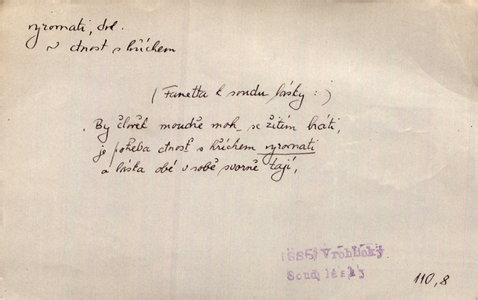 vyrovnati, dok.
~ ctnost s hříchem
(Fanetta k soudu lásky :)
By člověk moudře moh se žitím bráti,
je potřeba ctnost s hříchem vyrovnati
a láska obé v sobě svorně tají,
1886, Vrchlický
Soud lásky
110, 8